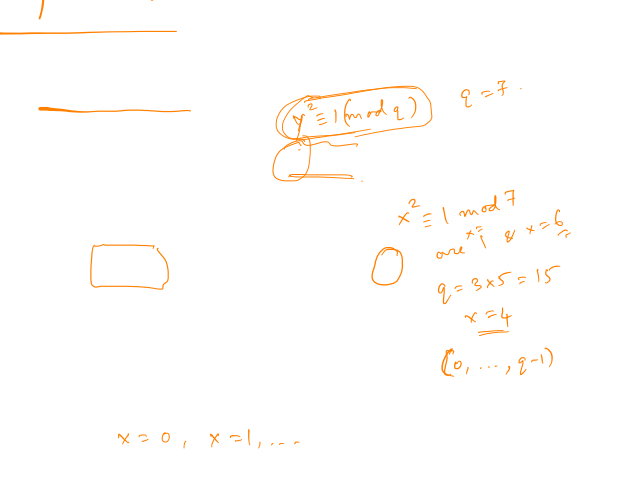 y² ≡ 1 (mod q)
q = 7.
x² ≡ 1 mod 7
are x = 1 & x = 6
q = 3 × 5 = 15
x = 4
(0, ..., q-1)
x = 0, x = 1, ...